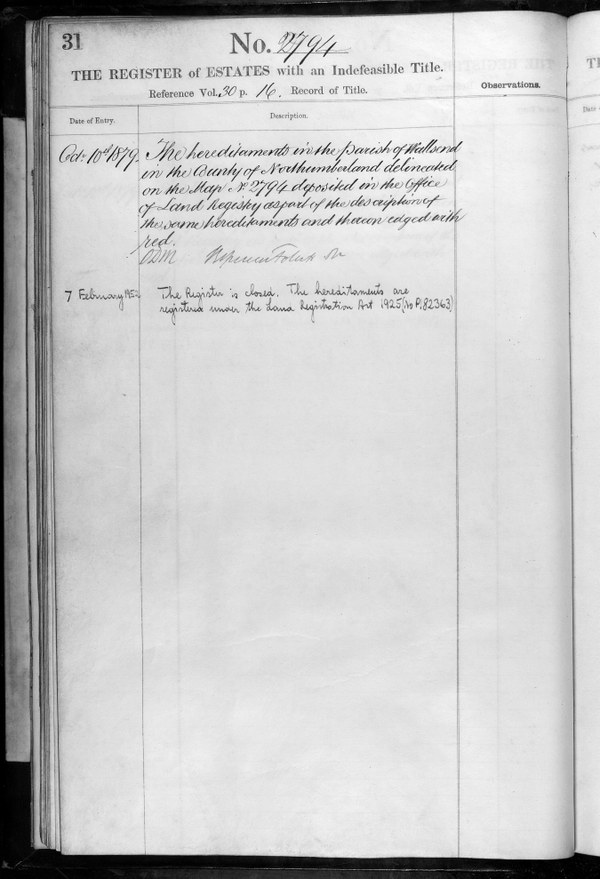 31
No. 2794
THE REGISTER of ESTATES with an Indefeasible Title.
Reference Vol. 30 p. 16. Record of Title.
Observations.
Date of Entry.
Description.
Oct. 10th 1879.
The hereditaments in the Parish of Wallsend
in the County of Northumberland delineated
on the Map No 2794 deposited in the Office
of Land Registry as part of the description of
the same hereditaments and thereon edged with
red.
7 February
The Register is closed. The hereditaments are
registered under the Land Registration Act 1925 (No P.82363)